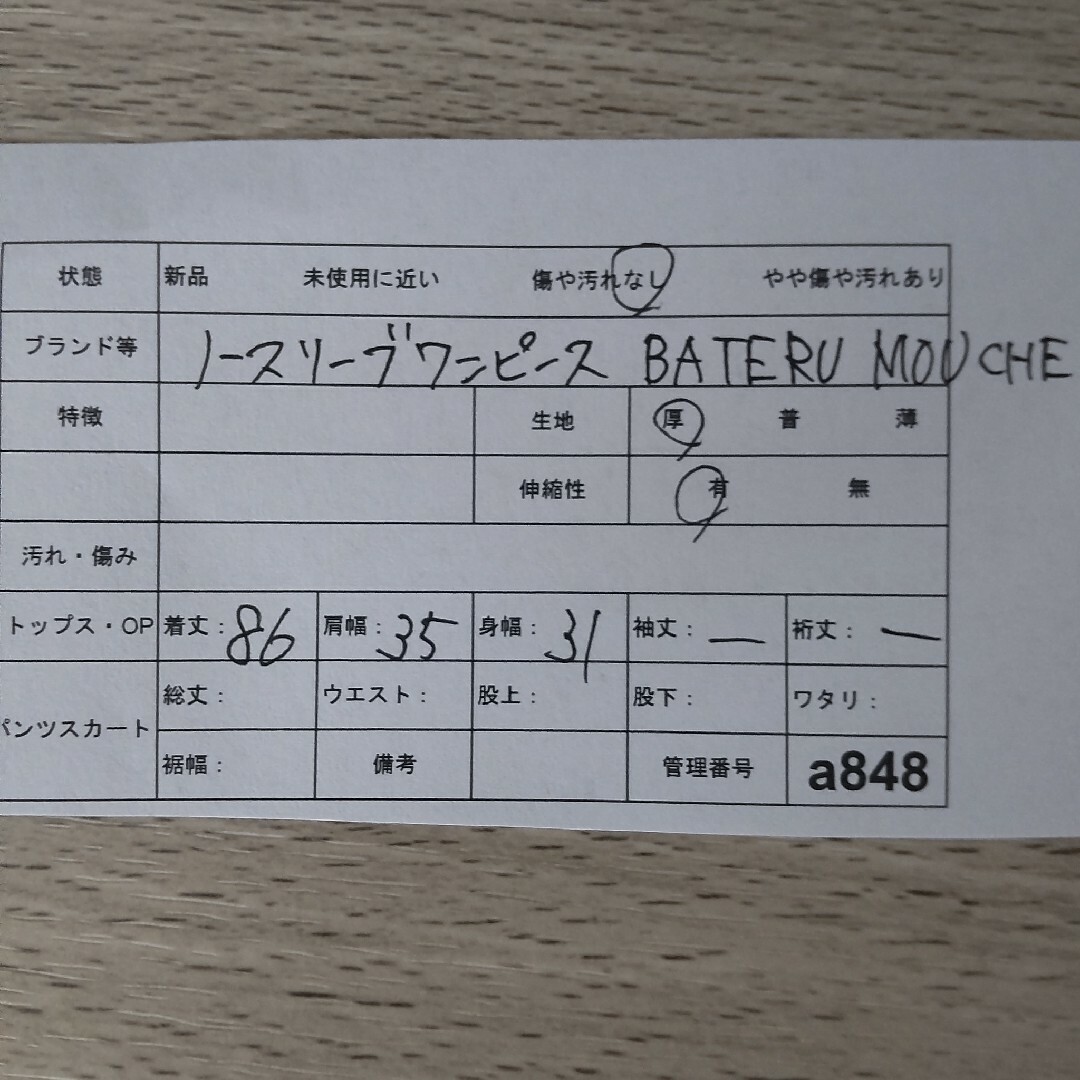 状態 新品 未使用に近い 傷や汚れなし やや傷や汚れあり
ブランド等 ノースリーブワンピース BATERU MOUCHE
特徴 生地 厚 普 薄
伸縮性 有 無
汚れ・傷み
トップス・OP 着丈:86 肩幅:35 身幅:31 袖丈:— 裄丈:—
パンツスカート 総丈: ウエスト: 股上: 股下: ワタリ:
裾幅: 備考 管理番号 a848